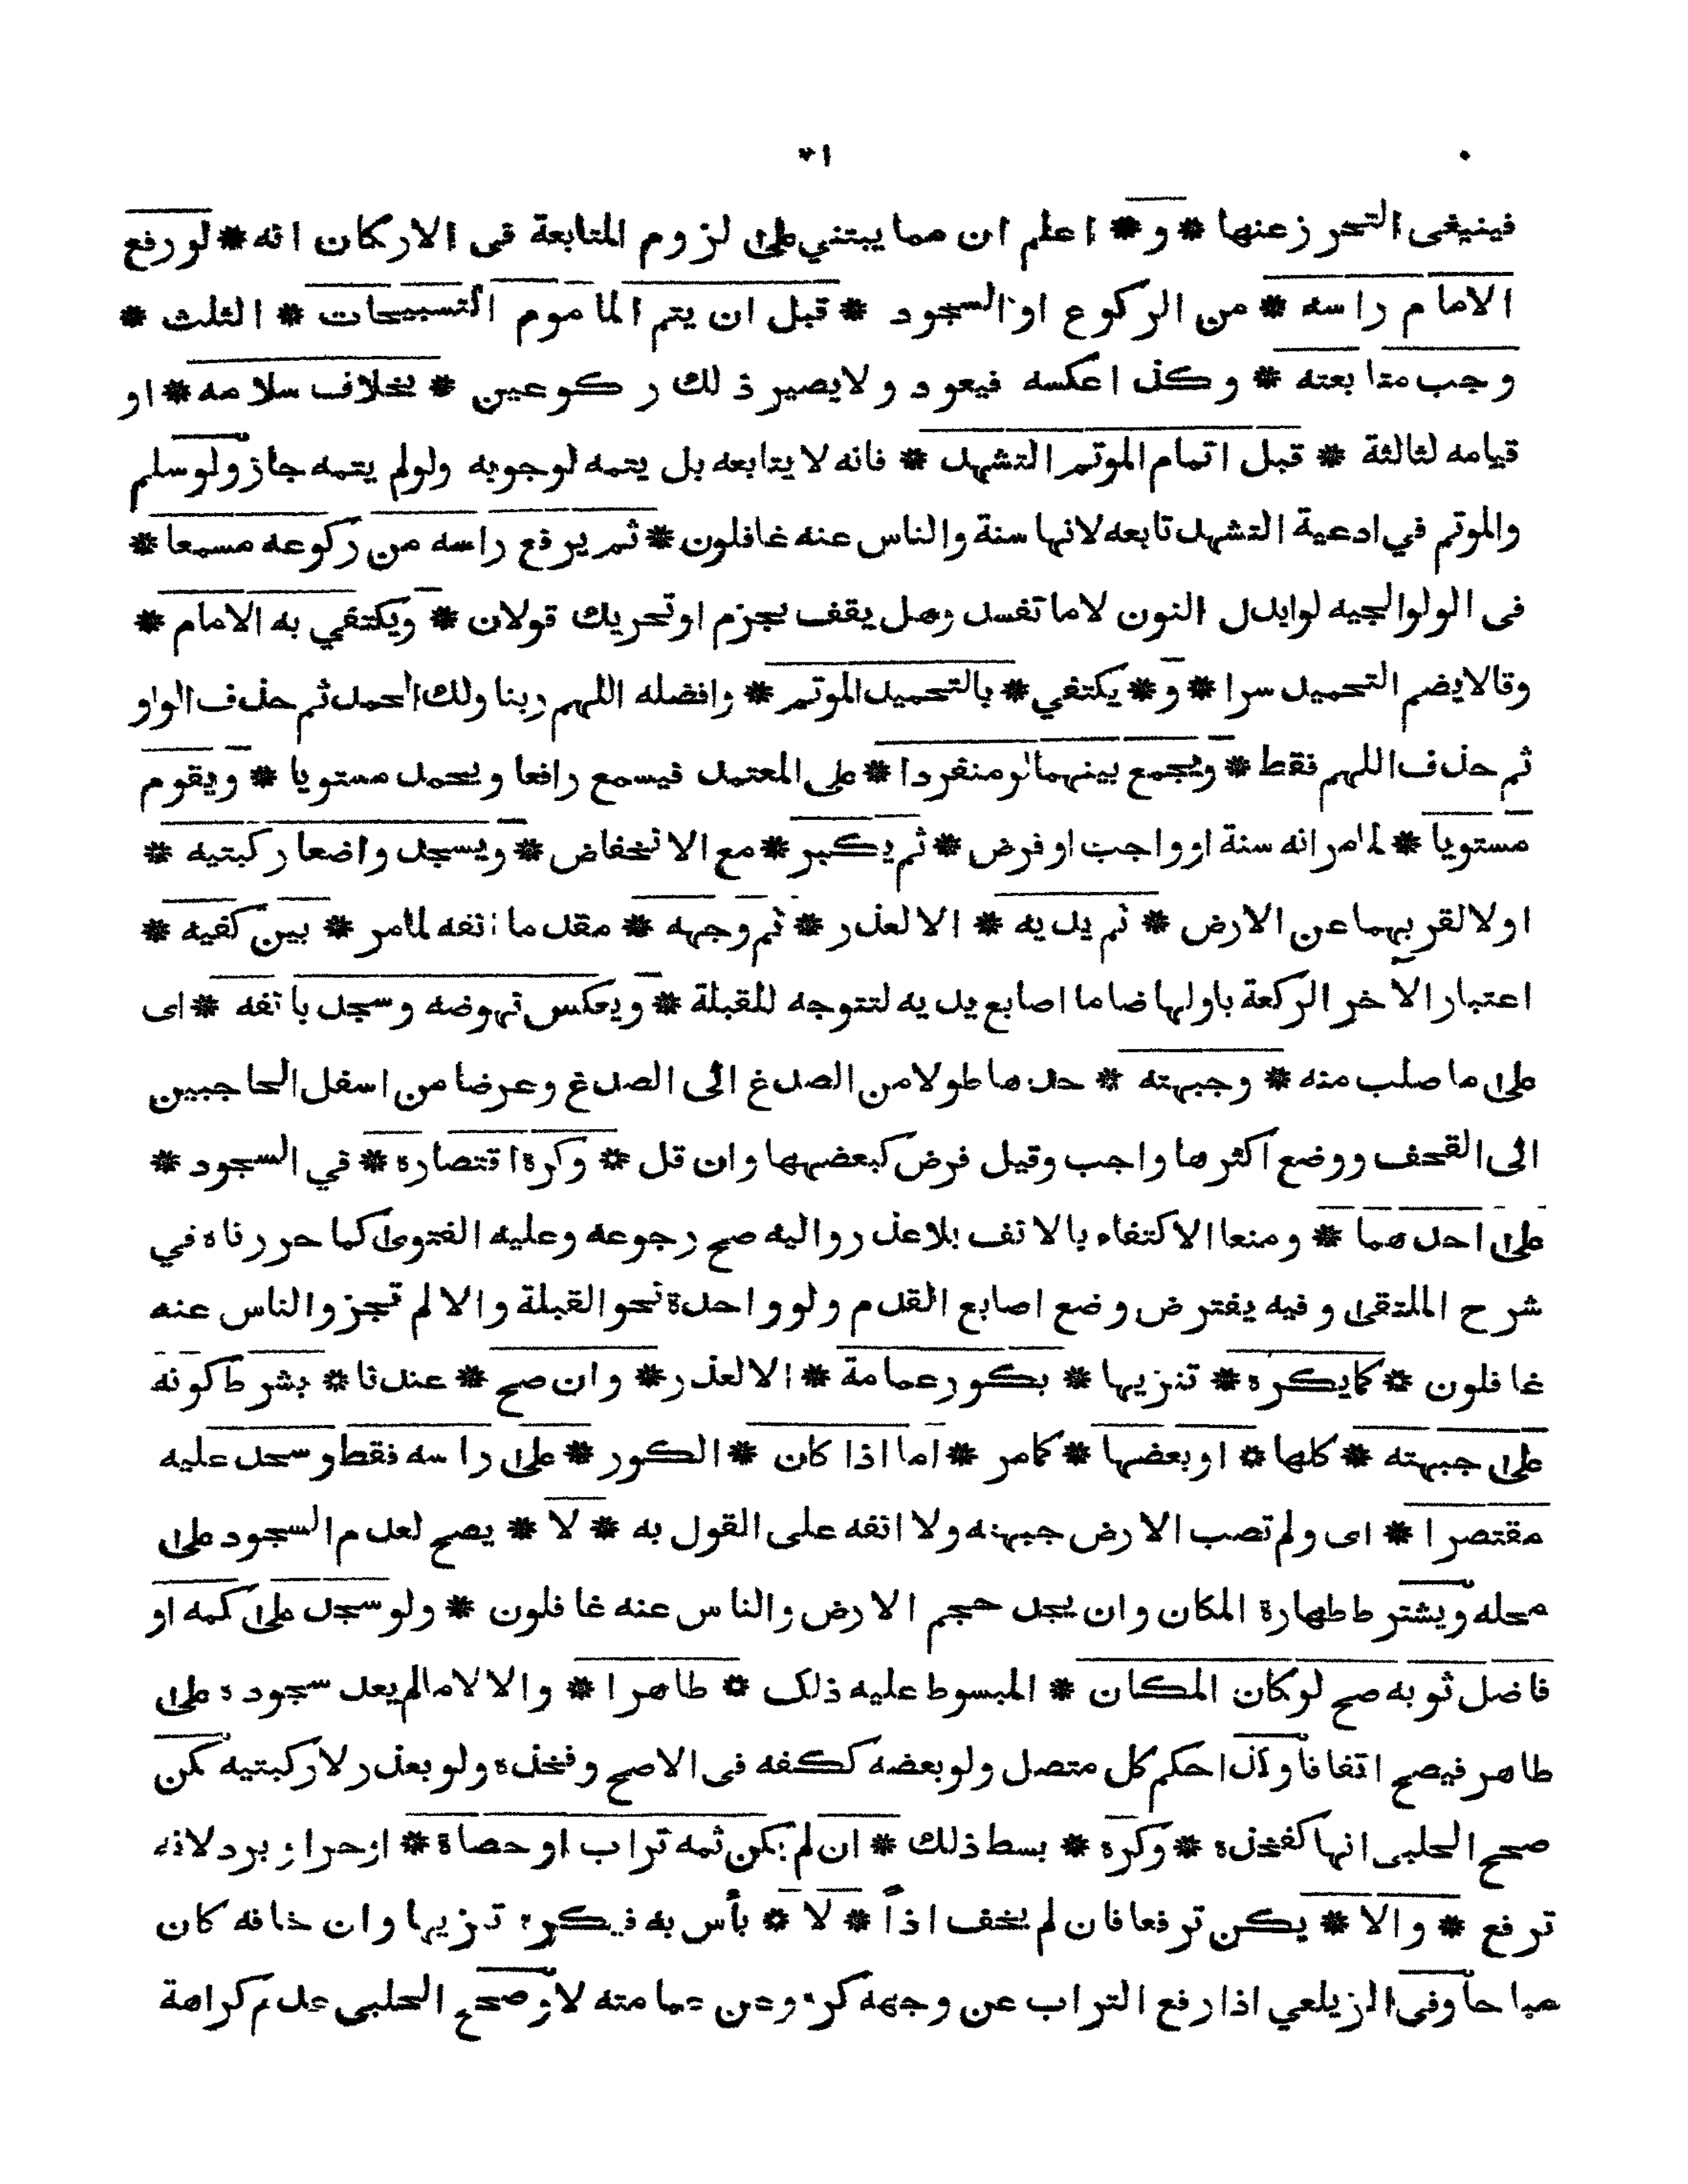 فينبغى التحرز عنها * و * اعلم ان مما يبتني على لزوم المتابعة فى الاركان انه * لو رفع
الامام راسه * من الركوع او السجود * قبل ان يتم الماموم التسبيحات * الثلث *
وجب متابعته * وكذا عكسه فيعود ولا يصير ذلك ركوعين * بخلاف سلامه * او
قيامه لثالثة * قبل اتمام الموتم التشهد * فانه لا يتابعه بل يتمه لوجوبه ولو لم يتمه جاز ولو سلم
والموتم في ادعية التشهد تابعه لانها سنة والناس عنه غافلون * ثم يرفع راسه من ركوعه مسمعا *
فى الولوالجيه لو ابدل النون لاما تفسد وهل يقف بجزم او تحريك قولان * ويكتفي به الامام *
وقالا يضم التحميد سرا * و * يكتفي * بالتحميد الموتم * وافضله اللهم ربنا ولك الحمد ثم حذف الواو
ثم حذف اللهم فقط * ويجمع بينهما لو منفردا * على المعتمد فيسمع رافعا ويحمد مستويا * ويقوم
مستويا * لما مر انه سنة او واجب او فرض * ثم يكبر * مع الانخفاض * ويسجد واضعا ركبتيه *
اولا لقربهما عن الارض * ثم يديه * الا لعذر * ثم وجهه * مقدما انفه لما مر * بين كفيه *
اعتبارا لآخر الركعة باولها ضاما اصابع يديه لتتوجه للقبلة * ويعكس نهوضه وسجد بانفه * اى
على ما صلب منه * وجبهته * حدها طولا من الصدغ الى الصدغ وعرضا من اسفل الحاجبين
الى القحف ووضع اكثرها واجب وقيل فرض كبعضهها وان قل * وكره اقتصاره * في السجود *
على احدهما * ومنعا الاكتفاء بالانف بلا عذر واليه صح رجوعه وعليه الفتوى كما حررناه في
شرح الملتقى وفيه يفترض وضع اصابع القدم ولو واحدة نحو القبلة والا لم تجز والناس عنه
غافلون * كما يكره * تنزيها * بكور عمامة * الا لعذر * وان صح * عندنا * بشرط كونه
على جبهته * كلها * او بعضها * كما مر * اما اذا كان * الكور * على راسه فقط وسجد عليه
مقتصرا * اى ولم تصب الارض جبهته ولا انفه على القول به * لا * يصح لعدم السجود على
محله ويشترط طهارة المكان وان يجد حجم الارض والناس عنه غافلون * ولو سجد على كمه او
فاضل ثوبه صح لو كان المكان * المبسوط عليه ذلك * طاهرا * والا لا ما لم يعد سجوده على
طاهر فيصح اتفاقا وكذا حكم كل متصل ولو بعضه ككفه فى الاصح وفخذه ولو بعذر لا ركبتيه لكن
صحح الحلبى انها كفخذه * وكره * بسط ذلك * ان لم يكن ثمه تراب او حصاة * او حر او برد لانه
ترفع * والا * يكن ترفعا فان لم يخف اذاً * لا * بأس به فيكره تنزيها وان خافه كان
مباحا وفى الزيلعي اذا رفع التراب عن وجهه كره وعن عمامته لا وصحح الحلبى عدم كراهة